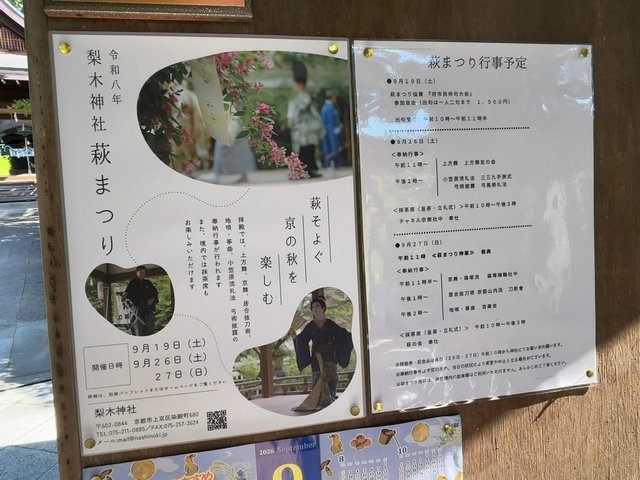 令和八年
梨木神社 萩まつり
萩そよぐ
京の秋を
楽しむ
拝殿では、上方舞、京舞、居合抜刀術、
地唄・箏曲、小笠原流礼法 弓術披露の
奉納行事が行われます
また、境内では抹茶席も
お楽しみいただけます
開催日時
9月19日(土)
9月26日(土)
27日(日)
梨木神社
〒602-0844 京都市上京区染殿町680
TEL:075-211-0885/FAX:075-257-2624
メール:mail@nashinoki.jp
萩まつり行事予定
●9月19日(土)
萩まつり協賛『府市民俳句大会』
参加自由(出句は一人二句まで 1,500円)
午前10時〜午前11時半
●9月26日(土)
<奉納行事>
午前11時〜 上方舞 上方舞友の会
午後1時〜 小笠原流礼法 三三九手挟式
弓術披露 弓馬術礼法
<抹茶席(呈茶・立礼式)>午前10時〜午後3時
チャネル京樂社中 奉仕
●9月27日(日)
午前11時 <萩まつり神事> 祭典
<奉納行事>
午前11時半〜 京舞・篠塚流 篠塚瑞穂社中
午後1時〜 居合抜刀術 京都山内派 刀新會
午後2時〜 地唄・箏曲
<抹茶席(呈茶・立礼式)> 午前10時〜午後3時
萩の会 奉仕
2026 September
9
8
10